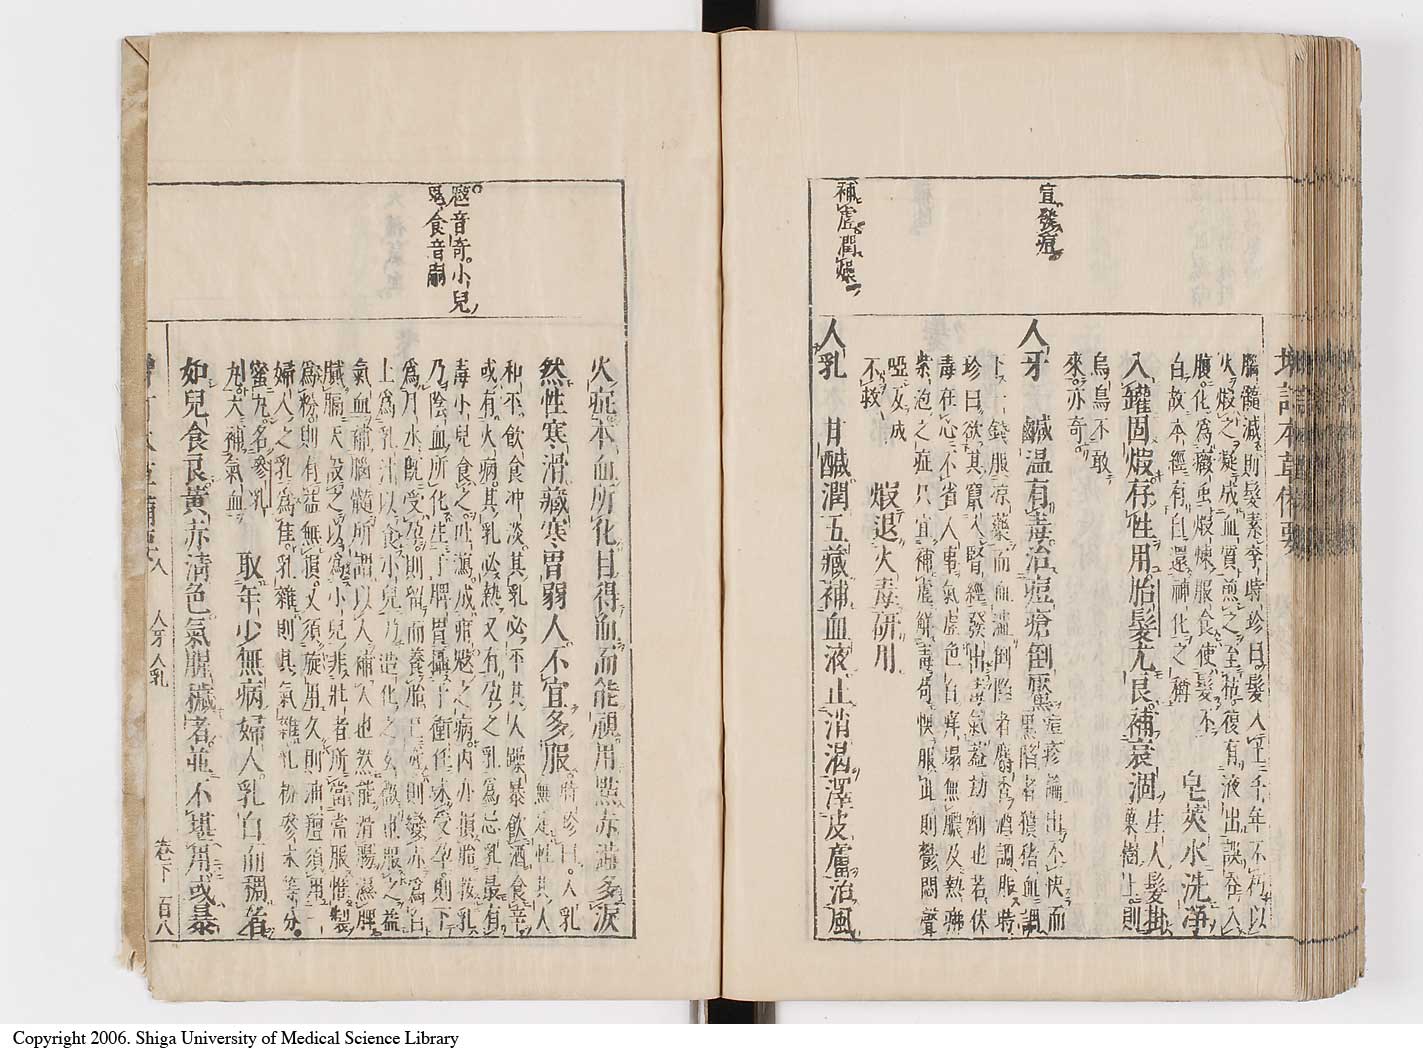 宣發痘
補虛潤燥
增訂本草備要
腦髓減則髮素李時珍曰髮入土千年不朽以
火煆之凝成血質煎之至枯復有液出誤吞入
腹化為癥虫煆煉服食使髮不
白故本經有自還神化之稱
皂莢水洗淨
入罐固煆存性用胎髮尤良補衰涸
生人髮掛
巢樹上則
烏鳥不敢
來亦奇
人牙 鹹溫有毒治痘瘡倒黶
痘疹論出不快而
黑陷者獖猪血調
下一錢服涼藥而血澁倒陷者麝香酒調服時
珍曰欲其竄入腎經發出毒氣蓋劫劑也若伏
毒在心不省人事氣虛色白痒塌無膿及熱痱
紫泡之症只宜補虛解毒苟悞服此則鬱悶聲
啞反成
不救
煆退火毒研用
人乳 甘鹹潤五藏補血液止消渴澤皮膚治風
𩲡音奇小兒
鬼食音嗣
火症本血所化目得血而能視用點赤澁多淚
然性寒滑藏寒胃弱人不宜多服
時珍曰人乳
無定性其人
和平飲食冲淡其乳必平其人躁暴飲酒食辛
或有火病其乳必熱又有孕之乳為忌乳最有
毒小兒食之吐瀉成疳𩲡之病內亦損胎按乳
乃陰血所化生于脾胃攝于衝任未受孕則下
為月水既受孕則留而養胎已產則變赤為白
上為乳汁以食小兒乃造化之玄微也服之益
氣血補腦髓所謂以人補人也然能滑腸濕脾
膩膈天設之以為小兒非壯者所當常服惟製
為粉則有益無損又須旋用久則油膻須用一
婦人之乳為佳乳雜則其氣雜乳粉參末等分
蜜丸名參乳
丸大補氣血
取年少無病婦人乳白而稠者
如兒食良黃赤清色氣腥穢者並不堪用或暴
增訂本草備要 人 人牙人乳 卷下 百八